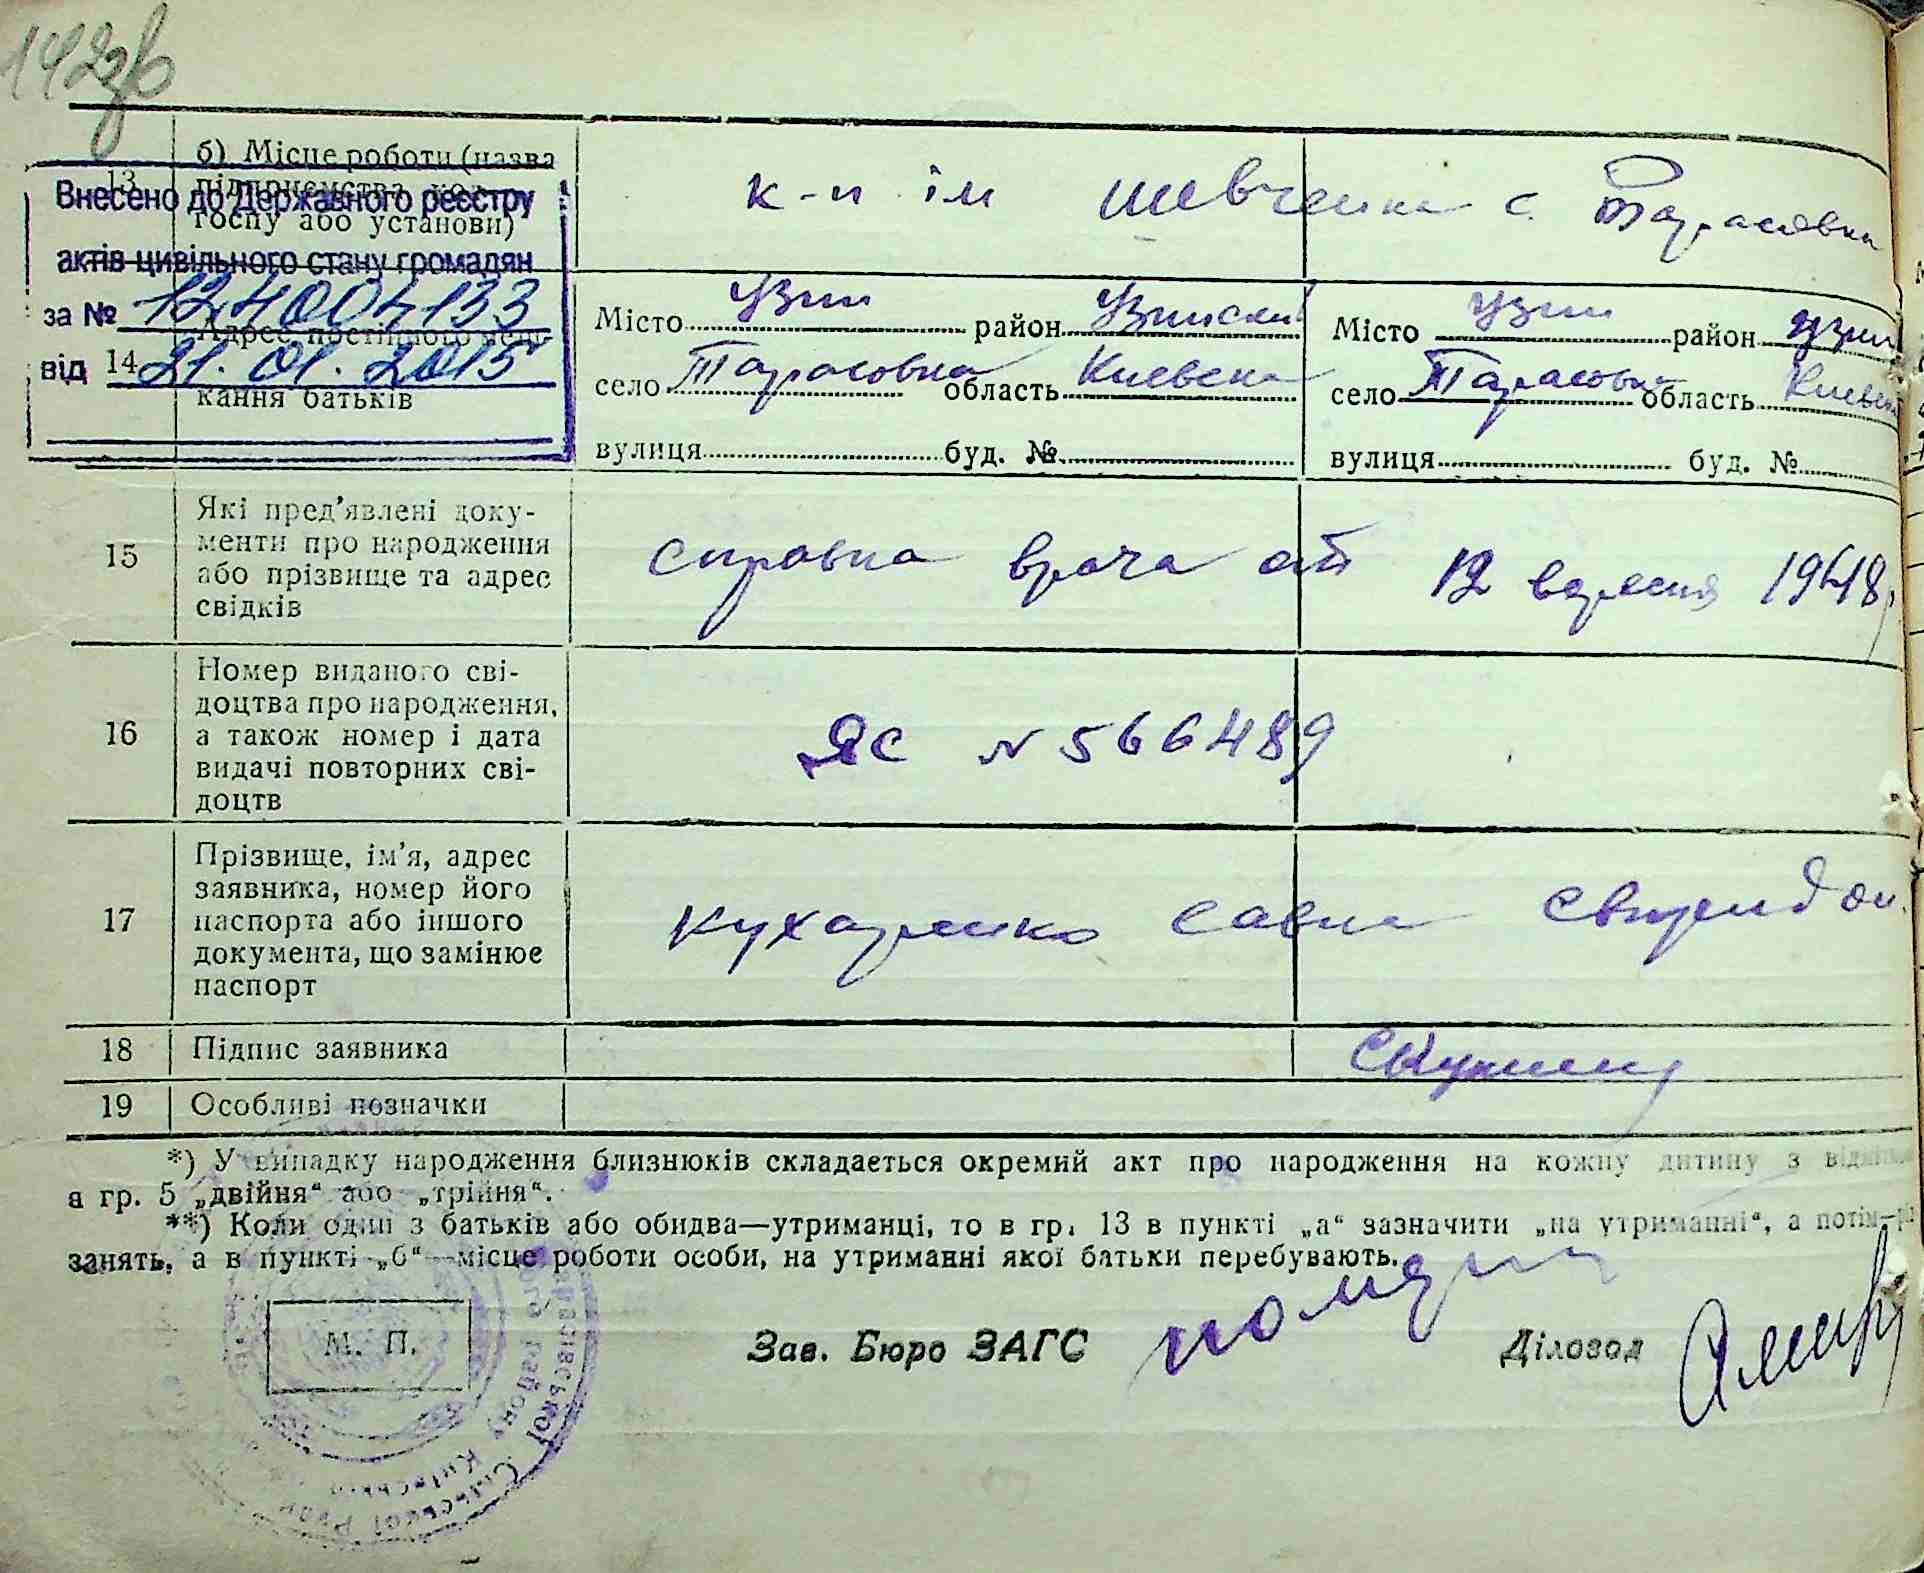 142зв
б) Місце роботи (назва
13 підприємства, кол-
госпу або установи)
к-п ім Шевченка с. Тарасовка
Внесено до Державного реєстру
актів цивільного стану громадян
за № 124004133
від 21.01.2015
14 Адрес постійного меш-
кання батьків
Місто Узин район Узински
село Тарасовка область Киевска
вулиця буд. №
Місто Узин район Узин
село Тарасовка область Киевск
вулиця буд. №
15 Які пред'явлені доку-
менти про народження
або прізвище та адрес
свідків
справка врача от 12 вересня 1948р
16 Номер виданого сві-
доцтва про народження,
а також номер і дата
видачі повторних сві-
доцтв
ЯС № 566489
17 Прізвище, ім'я, адрес
заявника, номер його
паспорта або іншого
документа, що замінює
паспорт
Кухаренко Савка Свиридон.
18 Підпис заявника
19 Особливі позначки
*) У випадку народження близнюків складається окремий акт про народження на кожну дитину з
в гр. 5 „двійня“ або „трійня“.
**) Коли один з батьків або обидва—утриманці, то в гр. 13 в пункті „а“ зазначити „на утриманні“, а потім—рі
занять, а в пункті „б“—місце роботи особи, на утриманні якої батьки перебувають.
М. П.
Зав. Бюро ЗАГС
Діловод
Сільської Ради
району Київської